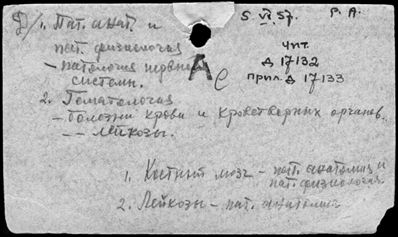 1. Пат. анат. и
пат. физиология
– патология нервной
системы.
2. Гематология
– болезни крови и кроветворных органов.
– – лейкозы.
S. VI. 57. P. A.
Чит.
Д 17132
прил. Д 17133
A
1. Костный мозг – пат. анатомия и
пат. физиология
2. Лейкозы – пат. анатомия